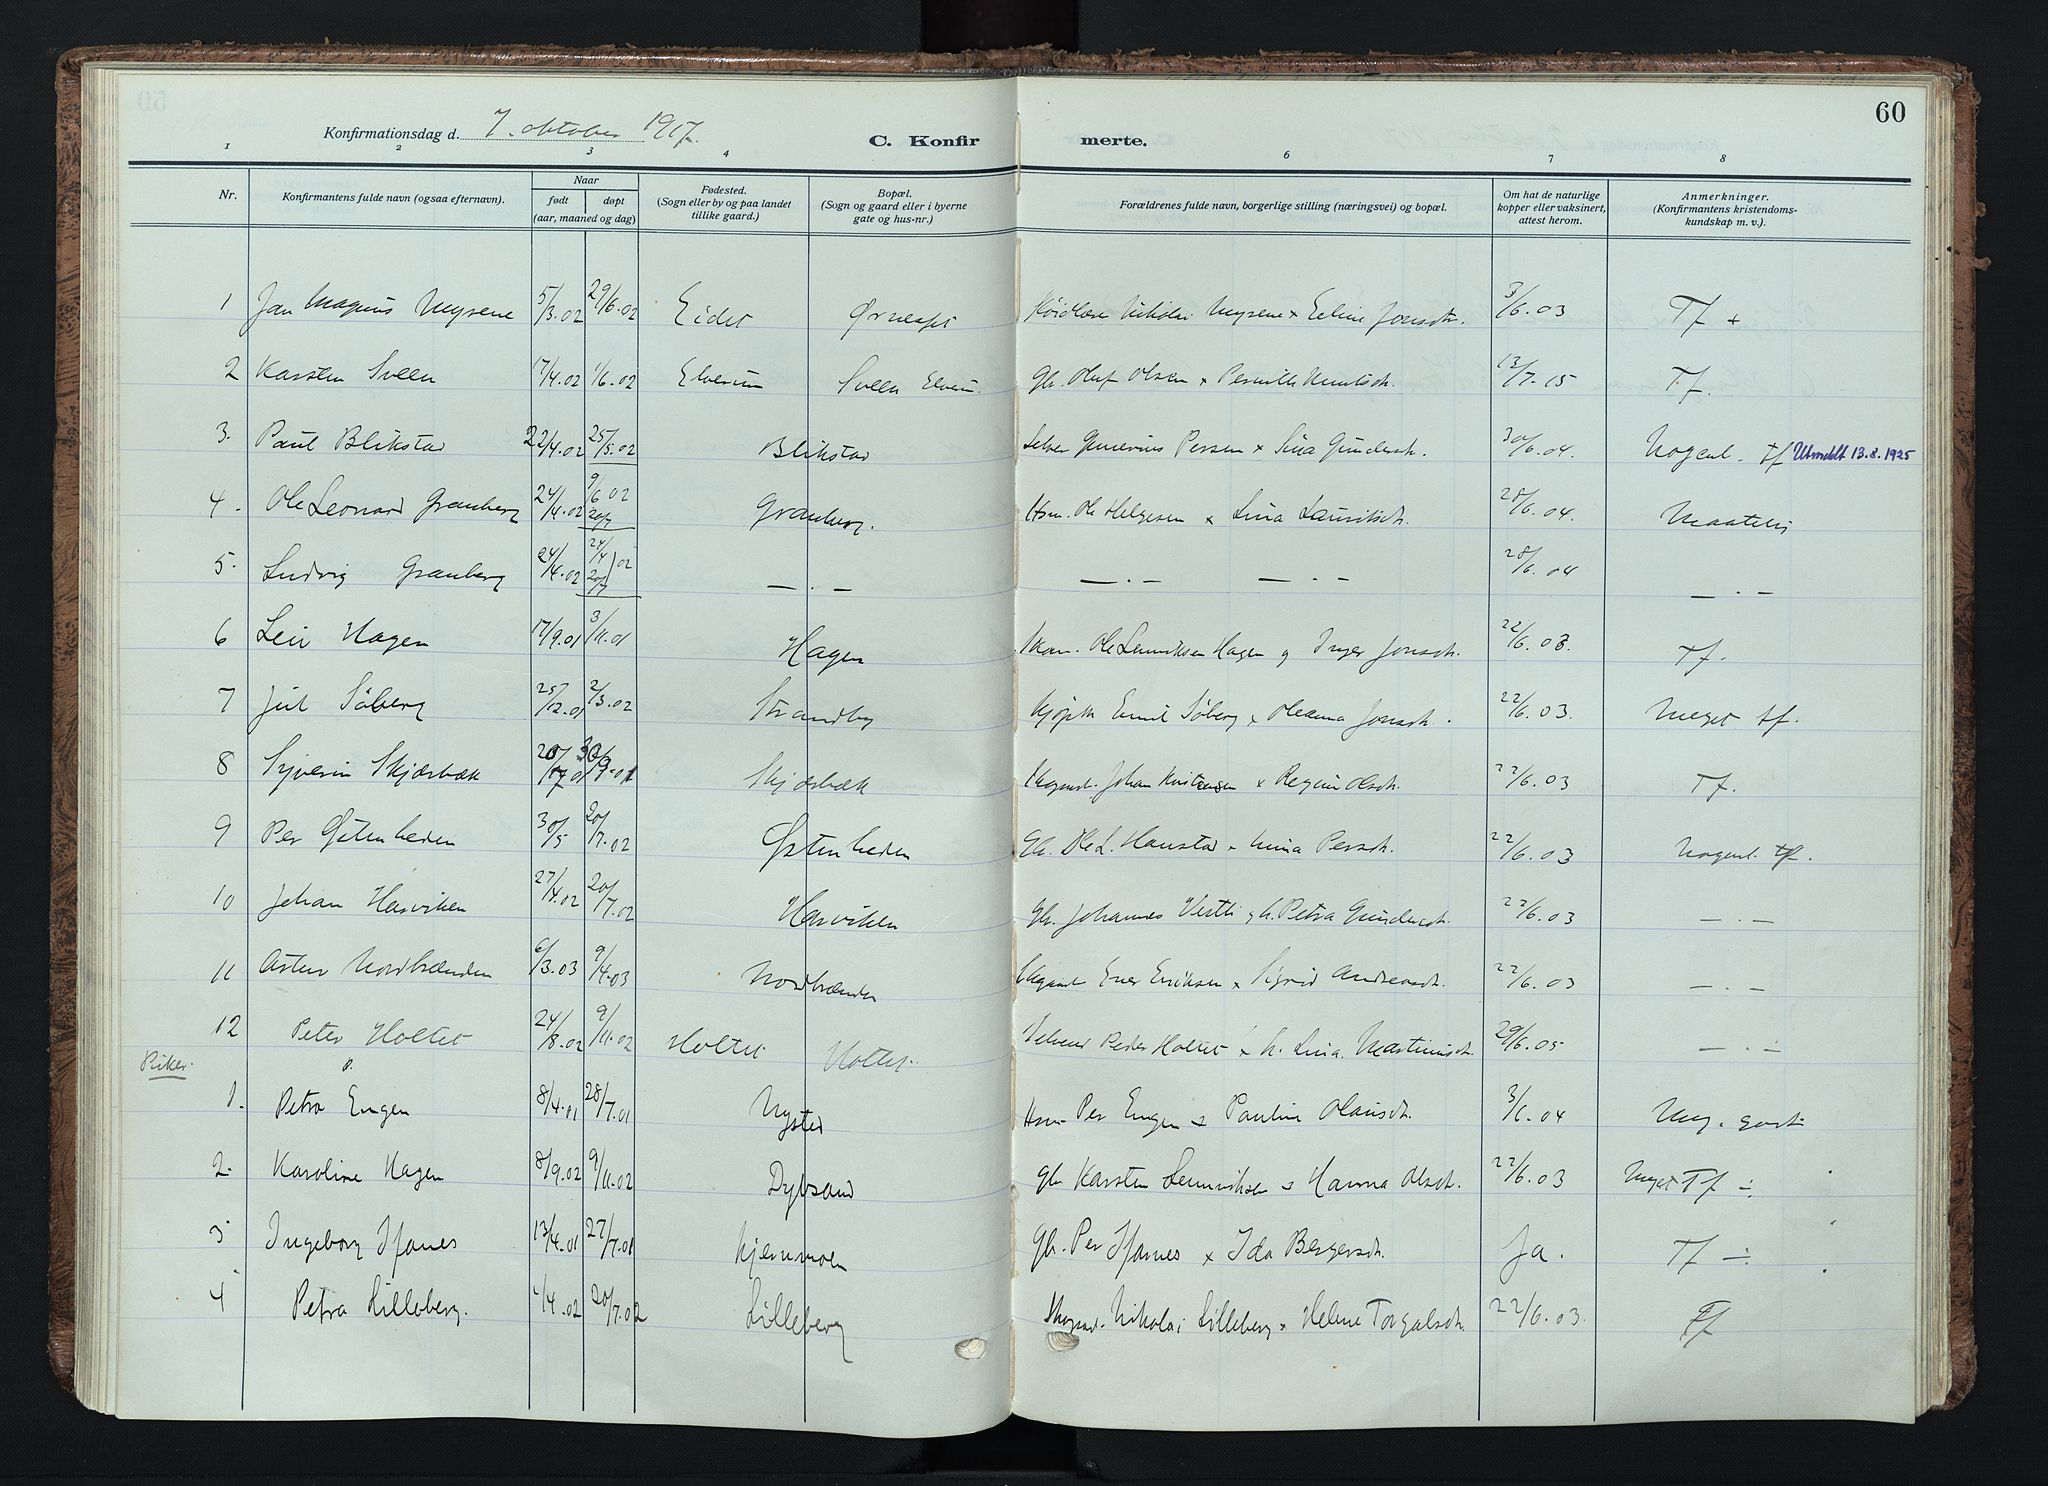 60
Konfirmationsdag d. 7. oktober 1917.
C. Konfirmerte.
1 2 3 4 6 7 8
Nr. Konfirmantens fulde navn (ogsaa efternavn). Naar født døpt (aar, maaned og dag) Fødested. (Sogn eller by og paa landet tillike gaard.) Bopæl. (Sogn og gaard eller i byerne gate og hus-nr.) Forældrenes fulde navn, borgerlige stilling (næringsvei) og bopæl. Om hat de naturlige kopper eller vaksinert, attest herom. Anmerkninger. (Konfirmantens kristendomskundskap m. v.).
1 Jan Magnus Mysene 5/3.02 29/6.02 Eidet Nikolai Mysene x Eline Jonsdt. 3/6.03 Tf +
2 Karsten Sveen 17/4.02 1/6.02 Elverum Sveen Elver. Gbr. Oluf Olsen x Pernille Knutsdt. 13/7-15 Tf.
3. Paul Blikstad 22/4.02 25/5.02 Blikstad Persen x Lina Gundersdt. 30/6.04. Nogenl. Tf Utmeldt 13.8.1925
4. Ole Leonard Granberg 24/4.02 9/6 02 20/7 Granberg. Hsm. Ole Helgesen x Lina Lauritsdt. 28/6.04. Maatelig
5. Ludvig Granberg 24/4.02 24/4 20/7 02 — . — — . — — . — 28/6.04 — . —
6 Leiv Hagen 17/9.01 3/11.01 Hagen Ole Hagen og Inger Jonsdt. 22/6.03. Tf.
7 Juel Søberg 25/12.01 2/3.02 Strandby Kjøpm Emil Søberg x Oleana Jonsdt. 22/6.03. Meget tf.
8 Syverin Skjærbæk Skjærbæk Johan Kristensen x Regine Olsdt. 22/6.03 Tf.
9 Per Østenheden 30/5 20/7.02 Østenheden Gb. Ole L. Hanstad x Persdt. 22/6.03 Nogenl. tf.
10 Johan Hasviken 27/4.02 20/7.02 Hasviken Gb. Johannes h. Petra Gundersdt. 22/6.03 — . —
11 Nordbrænden 6/3.03 9/4.03 Nordbrænden Eriksen x Sigrid Andreasdt. 22/6.03 — . —
12 Peter Holtet 24/8.02 9/11.02 Holtet Holtet. Peder Holtet x h. Lina Martinusdt. 29/6.05 — . —
Piker. P.
1. Petra Engen 8/4.01 28/7.01 Nysted Hsm Per Engen x Pauline Olausdt. 3/6.04 Meg. godt
2. Karoline Hagen 8/9.02 9/11.02 Dybsand Gb. Karsten x Hanna Olsdt. 22/6.03 Meget Tf ÷
3 Ingeborg Ifarnes 13/4.01 27/7.01 Kjernmoen Gb. Per Ifarnes x Ida Bergersdt. Ja. Tf ÷
4 Petra Lilleberg. 1/4.02 20/7.02 Lilleberg Nikolai Lilleberg x Helene Torgalsdt. 22/6.03. Tf